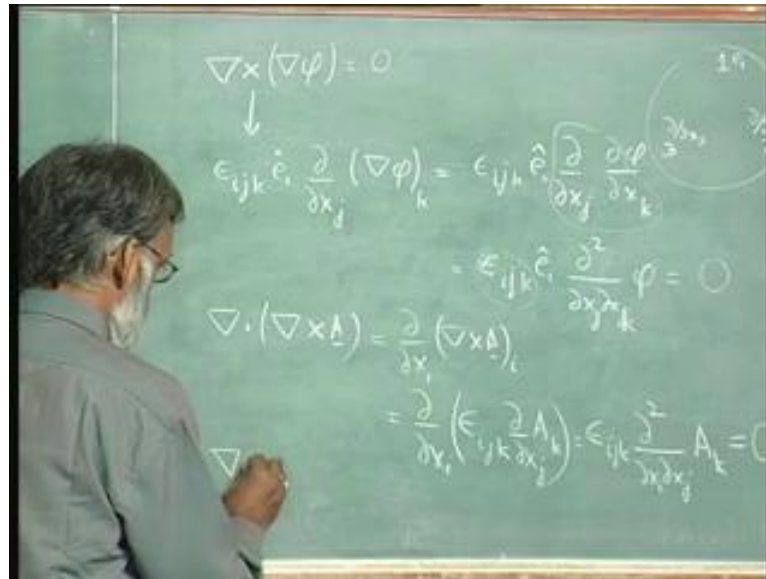 ∇×(∇φ) = 0
↓
ϵijk êi ∂/∂xj (∇φ)k = ϵijk êi ∂/∂xj ∂φ/∂xk
= ϵijk êi ∂²/∂xj∂xk φ = 0
∇·(∇×A) = ∂/∂xi (∇×A)i
= ∂/∂xi (ϵijk ∂/∂xj Ak) = ϵijk ∂²/∂xi∂xj Ak = 0
∇